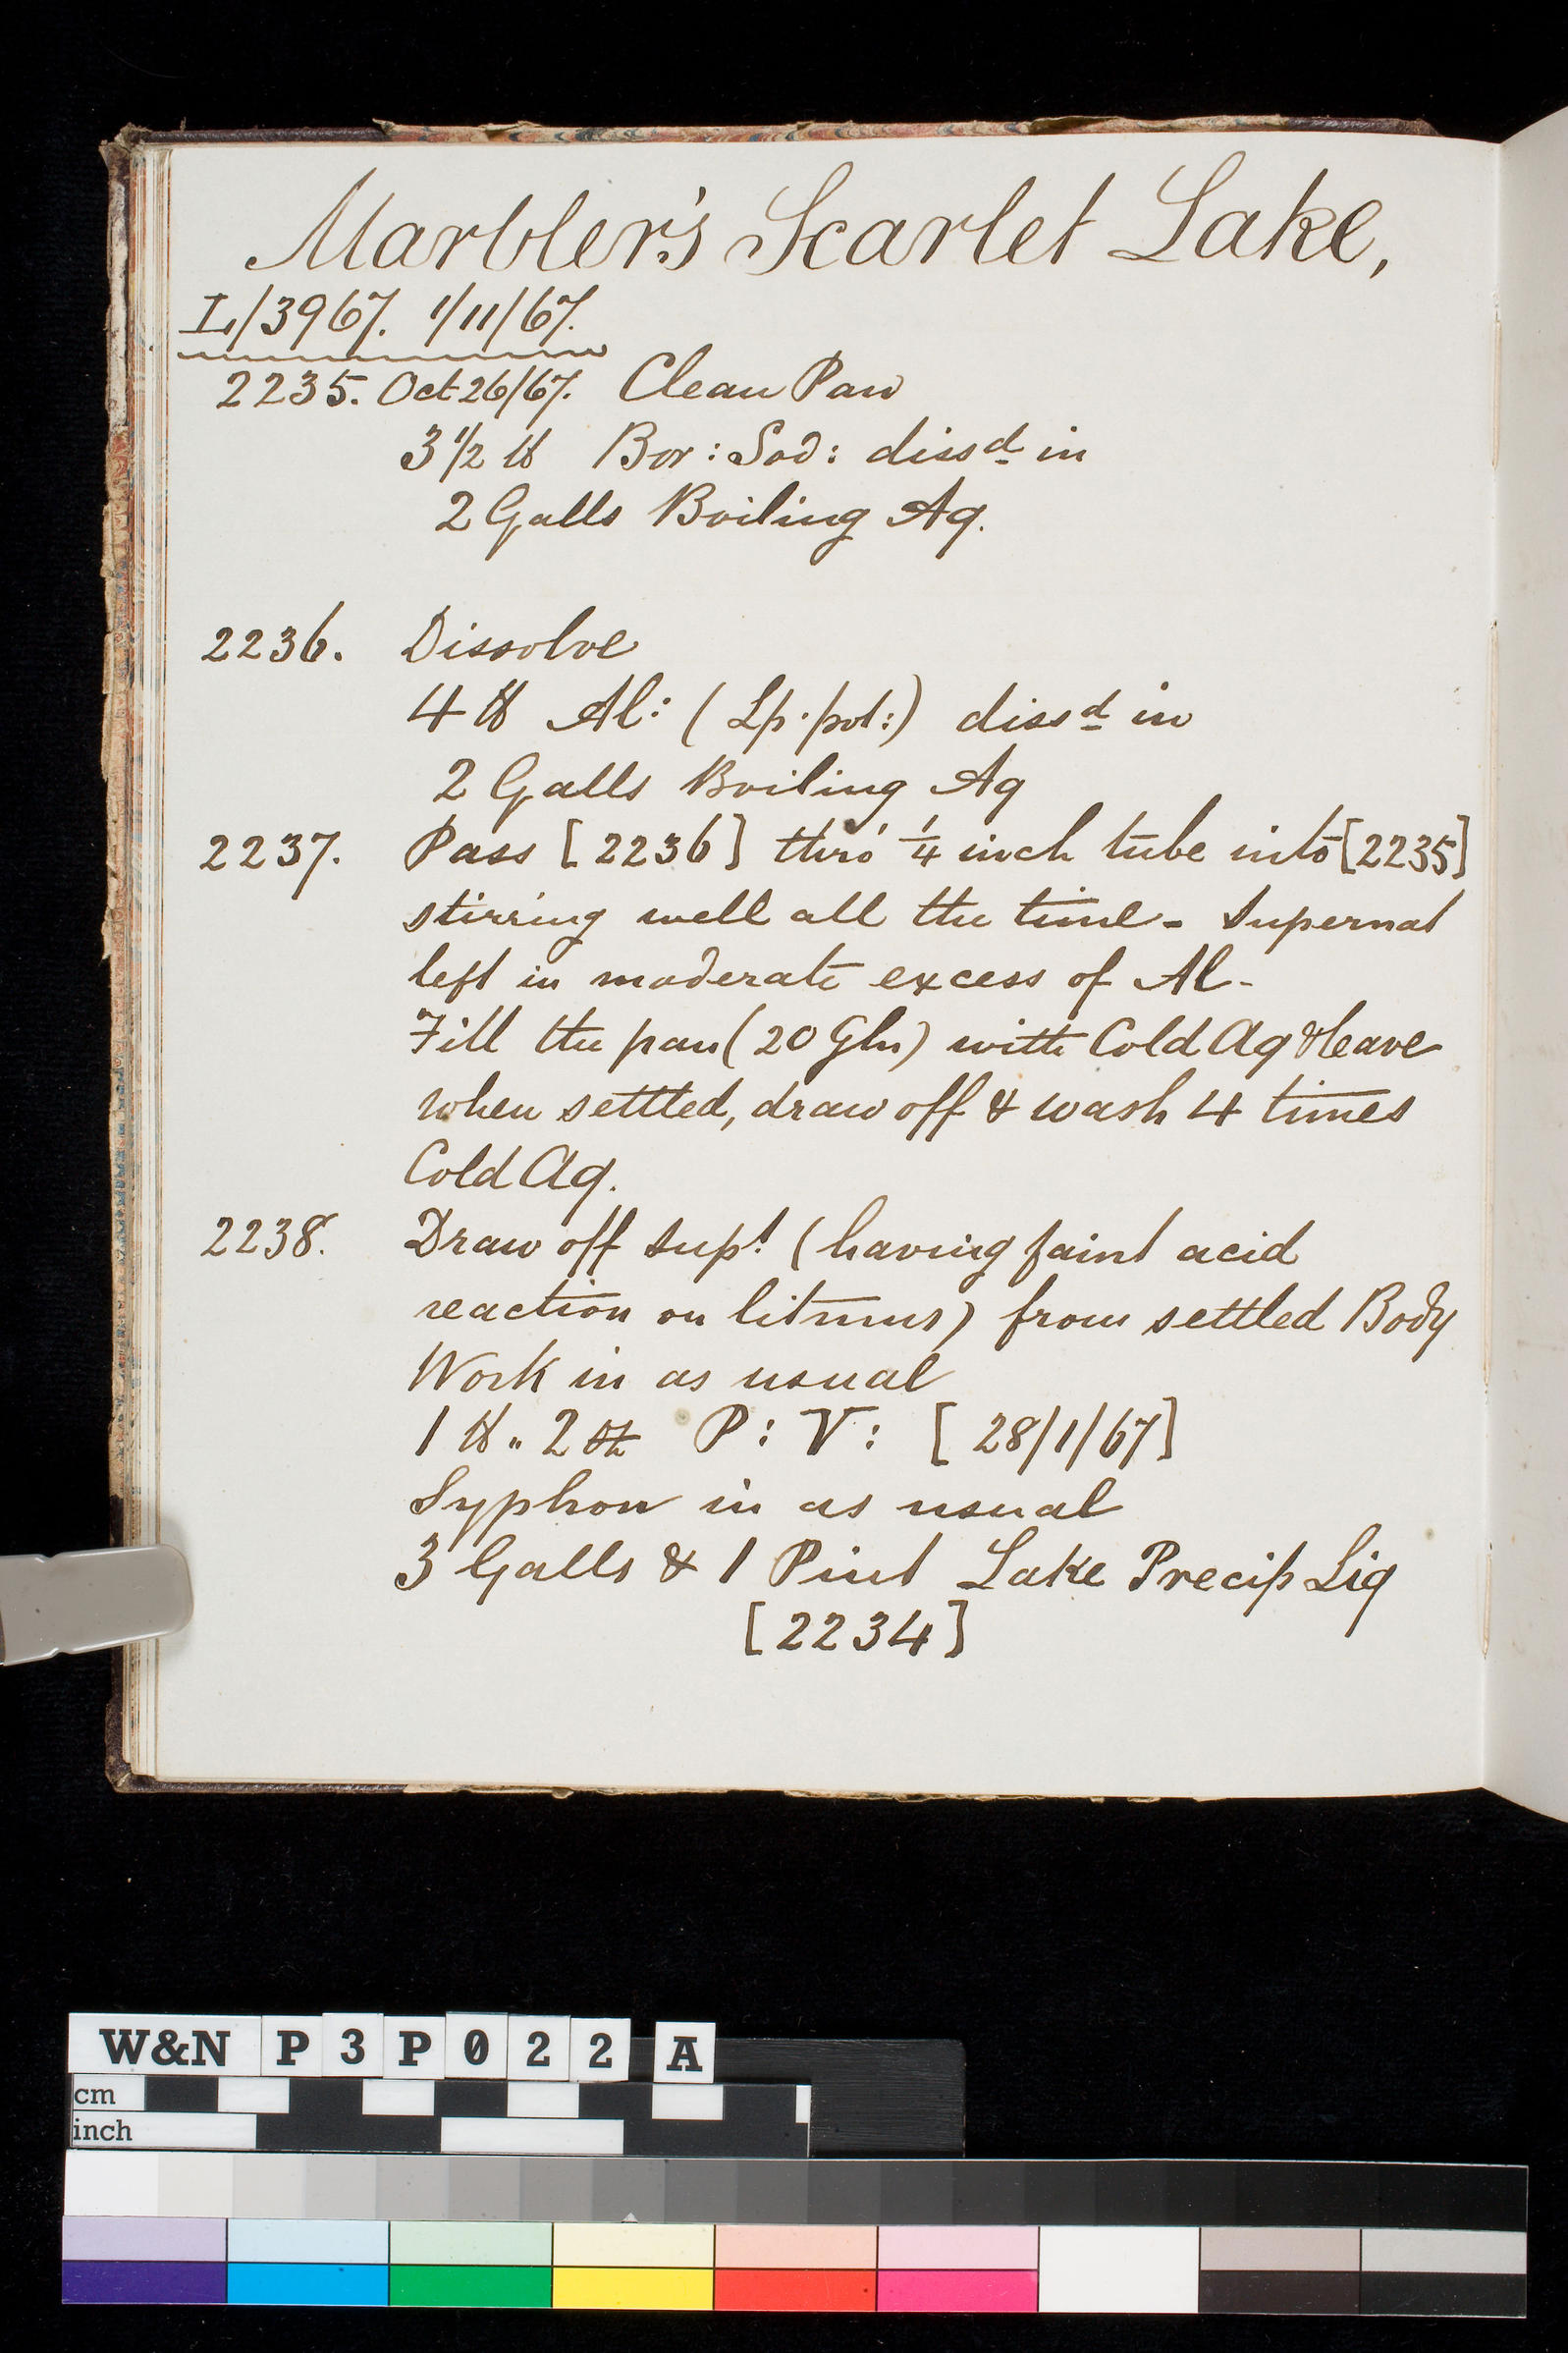 Marbler's Scarlet Lake,
L/3967. 1/11/67.
2235. Oct 26/67. Clean Pan
3 1/2 lb Bor: Sod: dissd in
2 Galls Boiling Aq.
2236. Dissolve
4 lb Al: (Lp. pot:) dissd in
2 Galls Boiling Aq
2237. Pass [2236] thro' 1/4 inch tube into [2235]
stirring well all the time - Supernat
left in moderate excess of Al -
Fill the pan (20 Gln) with Cold Aq & leave
when settled, draw off & wash 4 times
Cold Aq.
2238. Draw off supt (having faint acid
reaction on litmus) from settled Body
Work in as usual
1 lb .. 2 oz P: V: [28/1/67]
Syphon in as usual
3 Galls & 1 Pint Lake Precip Liq
[2234]
W&N P3P022 A
cm
inch